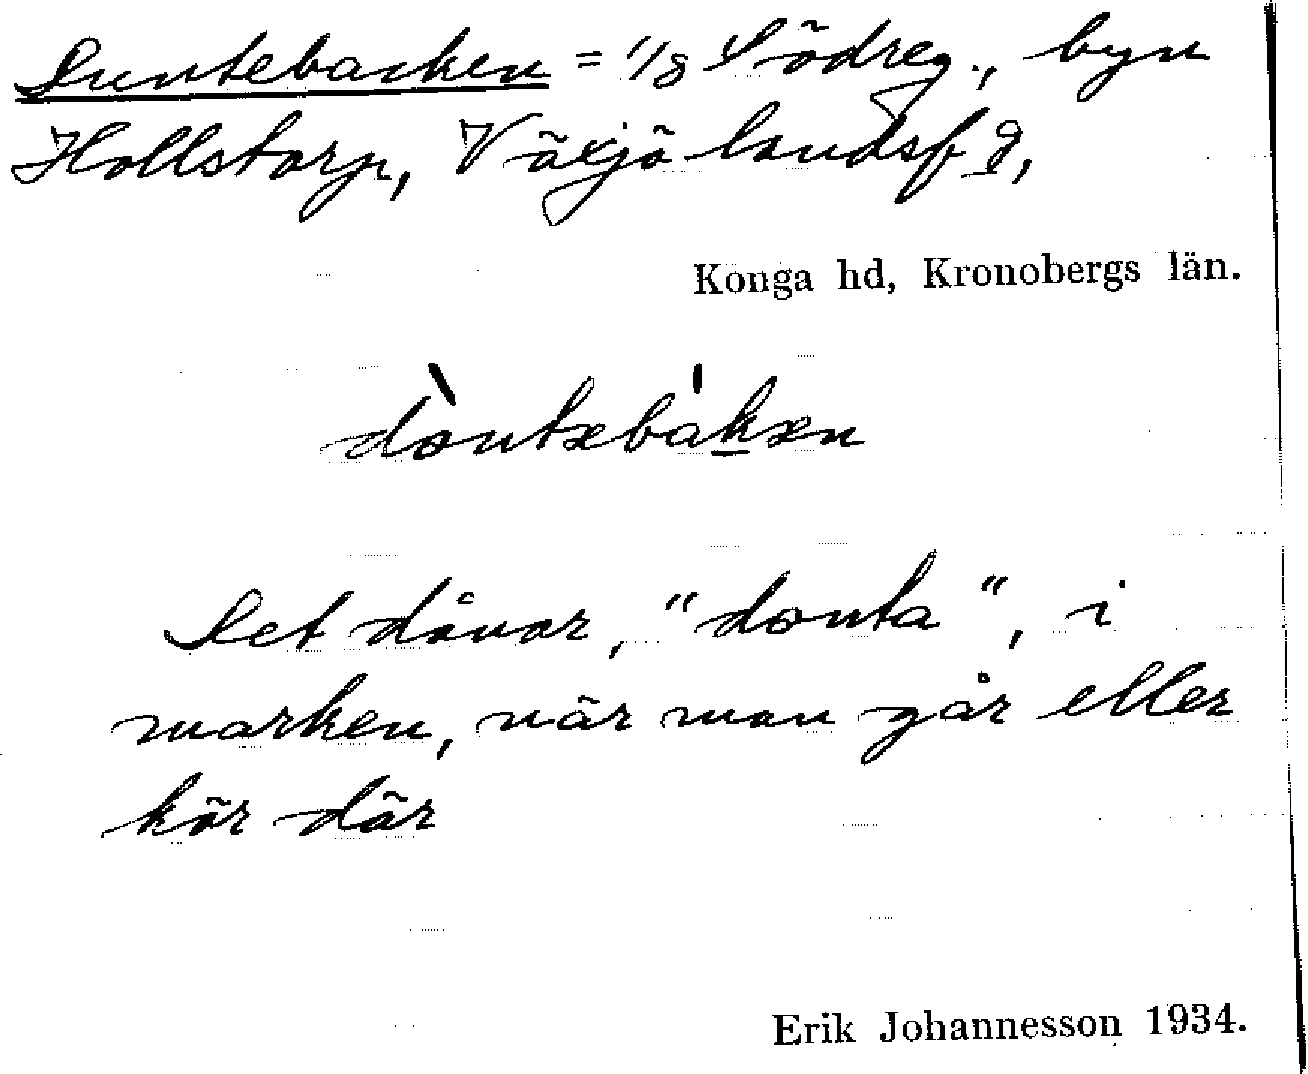 Duntebacken = 1/8 Södreg., byn
Hollstorp, Växjö landsf d,
Konga hd, Kronobergs län.
dòntəbákən
Det dånar, "donta", i
marken, när man går eller
kör där
Erik Johannesson 1934.